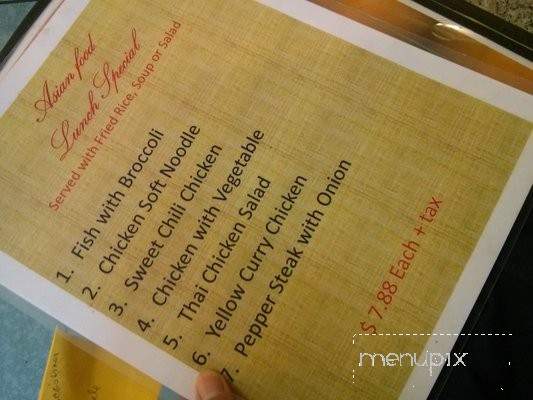 Asian food
Lunch Special
Served with Fried Rice, Soup or Salad
1. Fish with Broccoli
2. Chicken Soft Noodle
3. Sweet Chili Chicken
4. Chicken with Vegetable
5. Thai Chicken Salad
6. Yellow Curry Chicken
7. Pepper Steak with Onion
$ 7.88 Each + tax
menupix